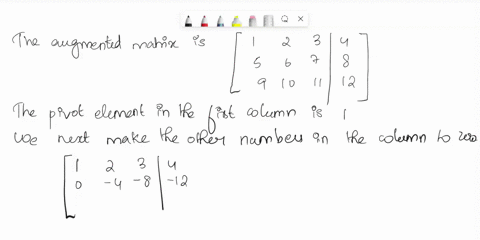 The augmented matrix is [ 1 2 3 | 4
5 6 7 | 8
9 10 11 | 12 ]
The pivot element in the first column is 1
We next make the other numbers in the column to zero
[ 1 2 3 | 4
0 -4 -8 | -12